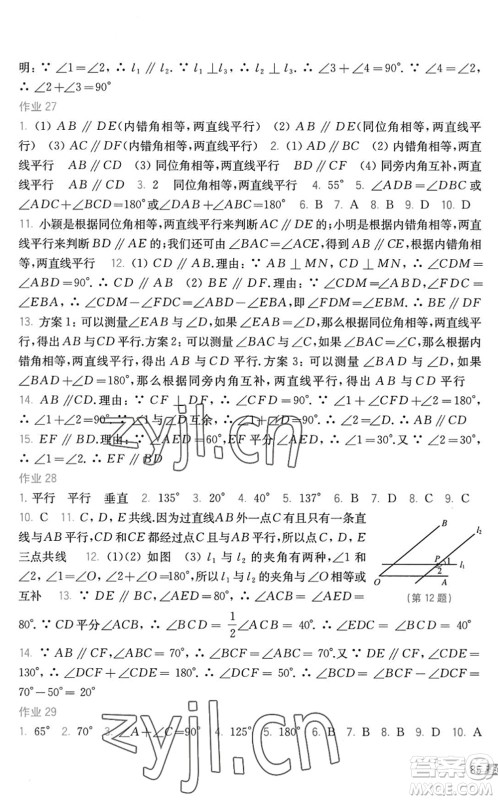 明：∵ ∠1＝∠2，∴ l₁ ∥ l₂．∵ l₁ ⊥ l₃，∴ l₂ ⊥ l₃，∴ ∠3＋∠4＝90°．∵ ∠2＝∠4，
∴ ∠2＋∠3＝90°
作业 27
1. (1) AB ∥ DE(内错角相等，两直线平行) (2) AB ∥ DE(同位角相等，两直线平
行) (3) AC ∥ DF(内错角相等，两直线平行) 2. (1) AD ∥ BC 内错角相等，两直
线平行 AB ∥ CD (3) 同位角相等，两直线平行 BD ∥ CF (4) 同旁内角互补，两
直线平行 3. 2 同位角相等，两直线平行 4. 55° 5. ∠ADB＝∠DBC 或
∠ADC＋∠DAB＝180°或∠ADE＝∠A 6. C 7. C 8. D 9. B 10. D
11. 小颖是根据同位角相等，两直线平行来判断 AC ∥ DE 的；小明是根据内错角相等，两
直线平行来判断 BD ∥ AE 的；我们还可以由∠BAC＝∠ACE，得到 AB ∥ CE，依据是内
错角相等，两直线平行 12. (1) CD ∥ AB．理由：∵ CD ⊥ MN，∴ ∠CDM＝90°．∵
∠ABD＝90°，∴ ∠CDM＝∠ABD，∴ CD ∥ AB (2) BE ∥ DF．理由：∵ ∠FDC＝
∠EBA，∴ ∠CDM－∠FDC＝∠ABD－∠EBA，即∠FDM＝∠EBM，∴ BE ∥ DF
13. 方案 1：可以测量∠EAB 与∠D，如果∠EAB＝∠D，那么根据同位角相等，两直线平
行，得出 AB 与 CD 平行．方案 2：可以测量∠BAC 与∠C，如果∠BAC＝∠C，那么根据
内错角相等，两直线平行，得出 AB 与 CD 平行．方案 3：可以测量∠BAD 与∠D，如果
∠BAD＋∠D＝180°，那么根据同旁内角互补，两直线平行，得出 AB 与 CD 平行
14. AB ∥ CD．理由：∵ CF ⊥ DF，∴ ∠CFD＝90°．∵ ∠1＋∠CFD＋∠2＝180°，
∴ ∠1＋∠2＝90°．∵ ∠1 与∠D 互余，∴ ∠1＋∠D＝90°，∴ ∠2＝∠D，∴ AB ∥ CD
15. EF ∥ BD．理由：∵ ∠AED＝60°，EF 平分∠AED，∴ ∠FED＝30°．又∵ ∠2＝
30°，∴ ∠FED＝∠2，∴ EF ∥ BD
作业 28
1. 平行 平行 垂直 2. 135° 3. 20° 4. 40° 5. 137° 6. B 7. D 8. C 9. B
10. C 11. C，D，E 共线．因为过直线AB 外一点C 有且只有一条
直线与AB 平行，CD、CE 都经过点C 且与AB 平行，所以C、D、E
三点共线 12. (1)(2) 如图 (3) l₁ 与 l₂ 的夹角有两种，∠1 和
∠2，∠1＝∠O，∠2＋∠O＝180°，所以 l₁ 与 l₂ 的夹角与∠O 相等
或互补 13. ∵ DE ∥ BC，∠AED＝80°，∴ ∠ACB＝∠AED＝
80°．∵ CD 平分∠ACB，∴ ∠BCD＝1/2∠ACB＝40°，∴ ∠EDC＝∠BCD＝40°
B
P
1
2
l₁
O
A
l₂
(第 12 题)
14. ∵ AB ∥ CF，∠ABC＝70°，∴ ∠BCF＝∠ABC＝70°．又∵ DE ∥ CF，∠CDE＝
130°，∴ ∠DCF＋∠CDE＝180°，∴ ∠DCF＝50°，∴ ∠BCD＝∠BCF－∠DCF＝
70°－50°＝20°
作业 29
1. 65° 2. 70° 3. ∠A＋∠C＝90° 4. 125° 5. 180° 6. C 7. D 8. B 9. D 10. A
85
zyjl.cn
zyjl.cn